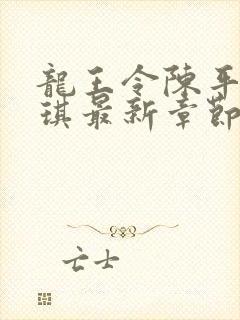 龍王令陳平
琪最新章節
亡士